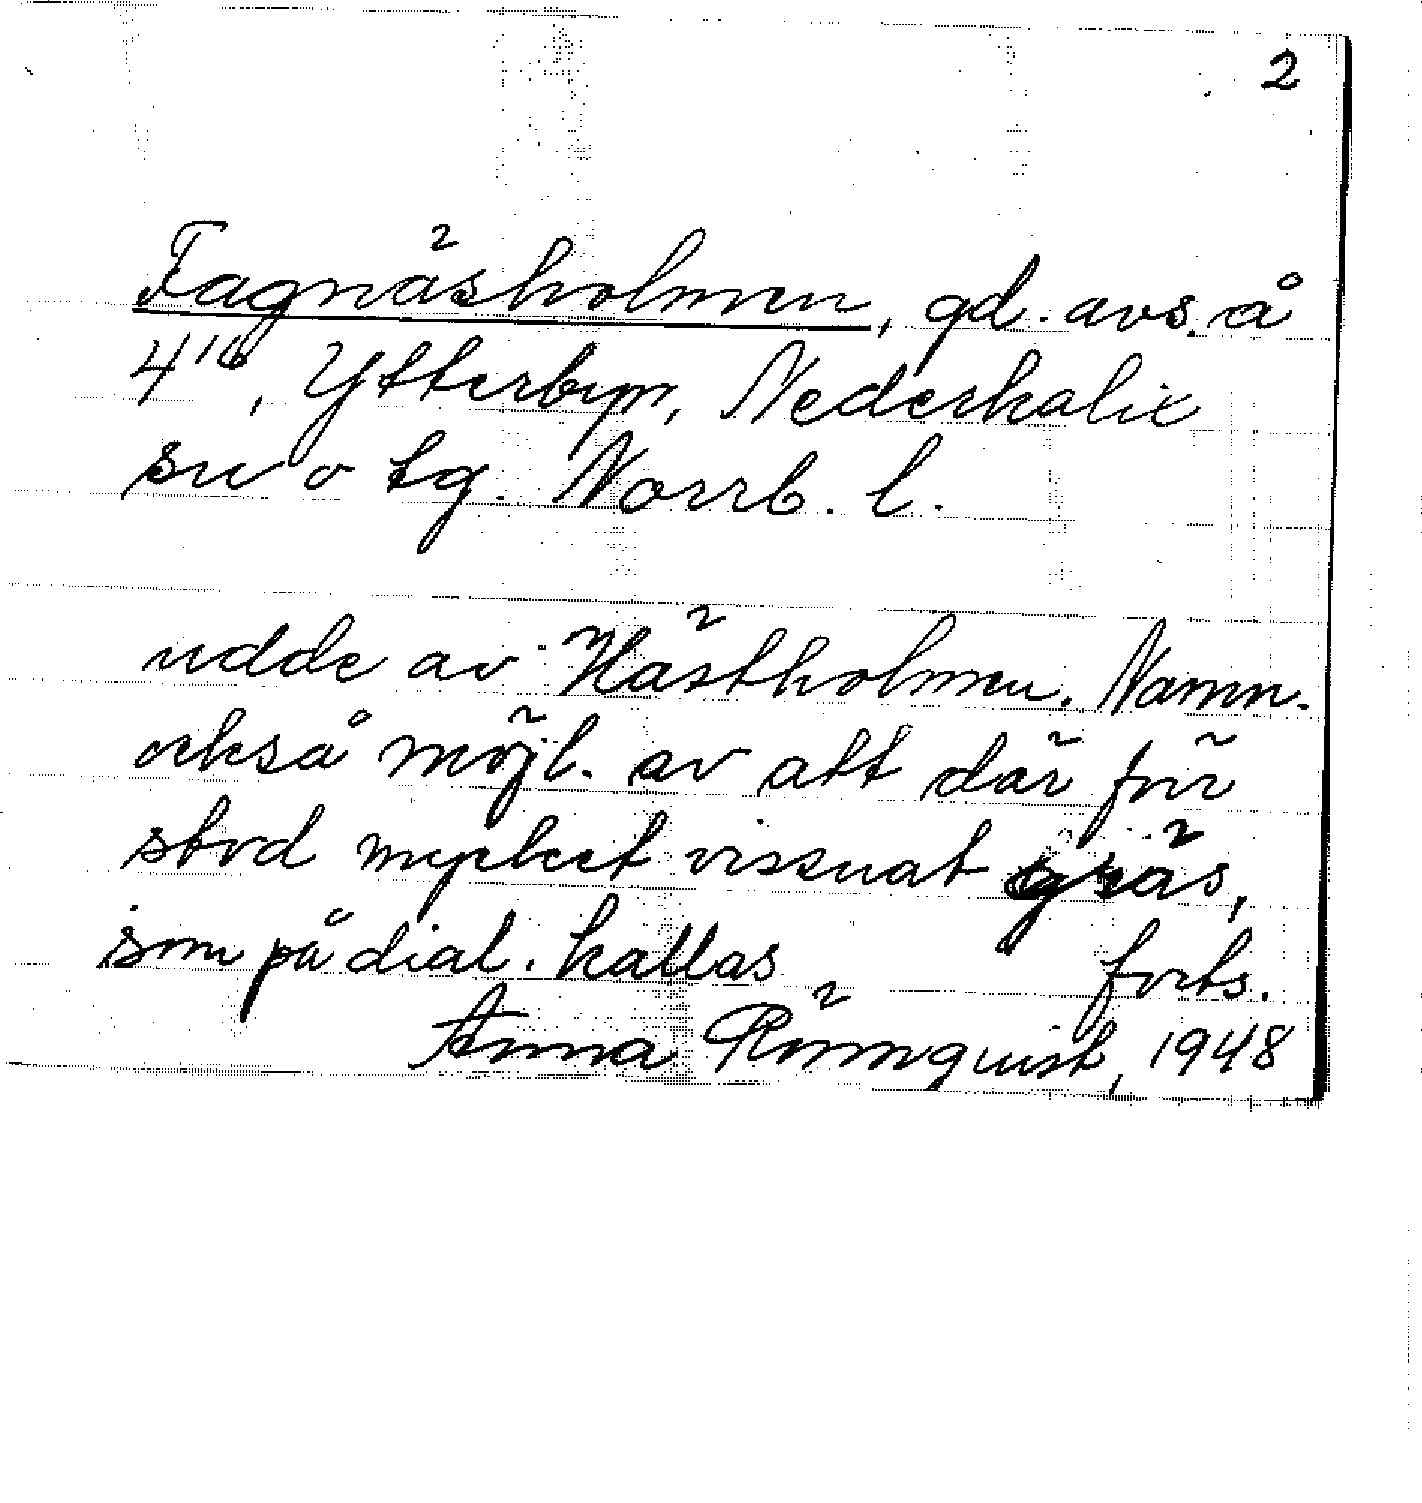 2
Fagnäsholmen, gd. avs. å
4¹⁶, Ytterbyn, Nederkalix
sn o tg. Norrb. l.
udde av Hästholmen. Namn.
också möjl. av att där förr
stod mycket vissnat gräs,
som på dial. kallas forts.
Anna Rönnquist, 1948